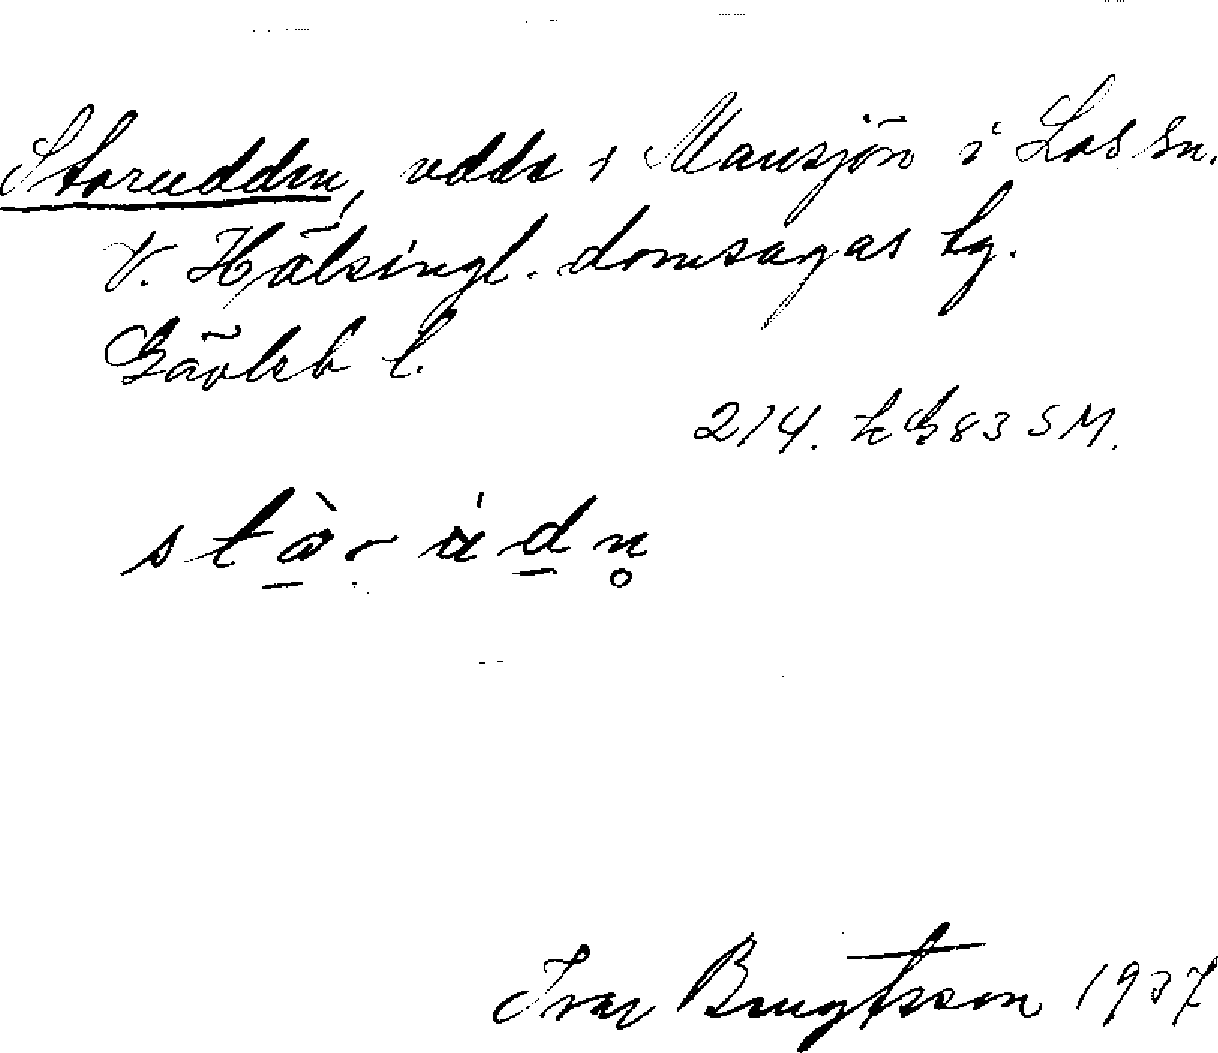 Storudden, udde i Mansjön i Los sn.
V. Hälsingl. domsagas tg.
Gävleb l.
214. LG 83 SM.
stò̱r ùḏn̥
Ivar Bengtsson 1937